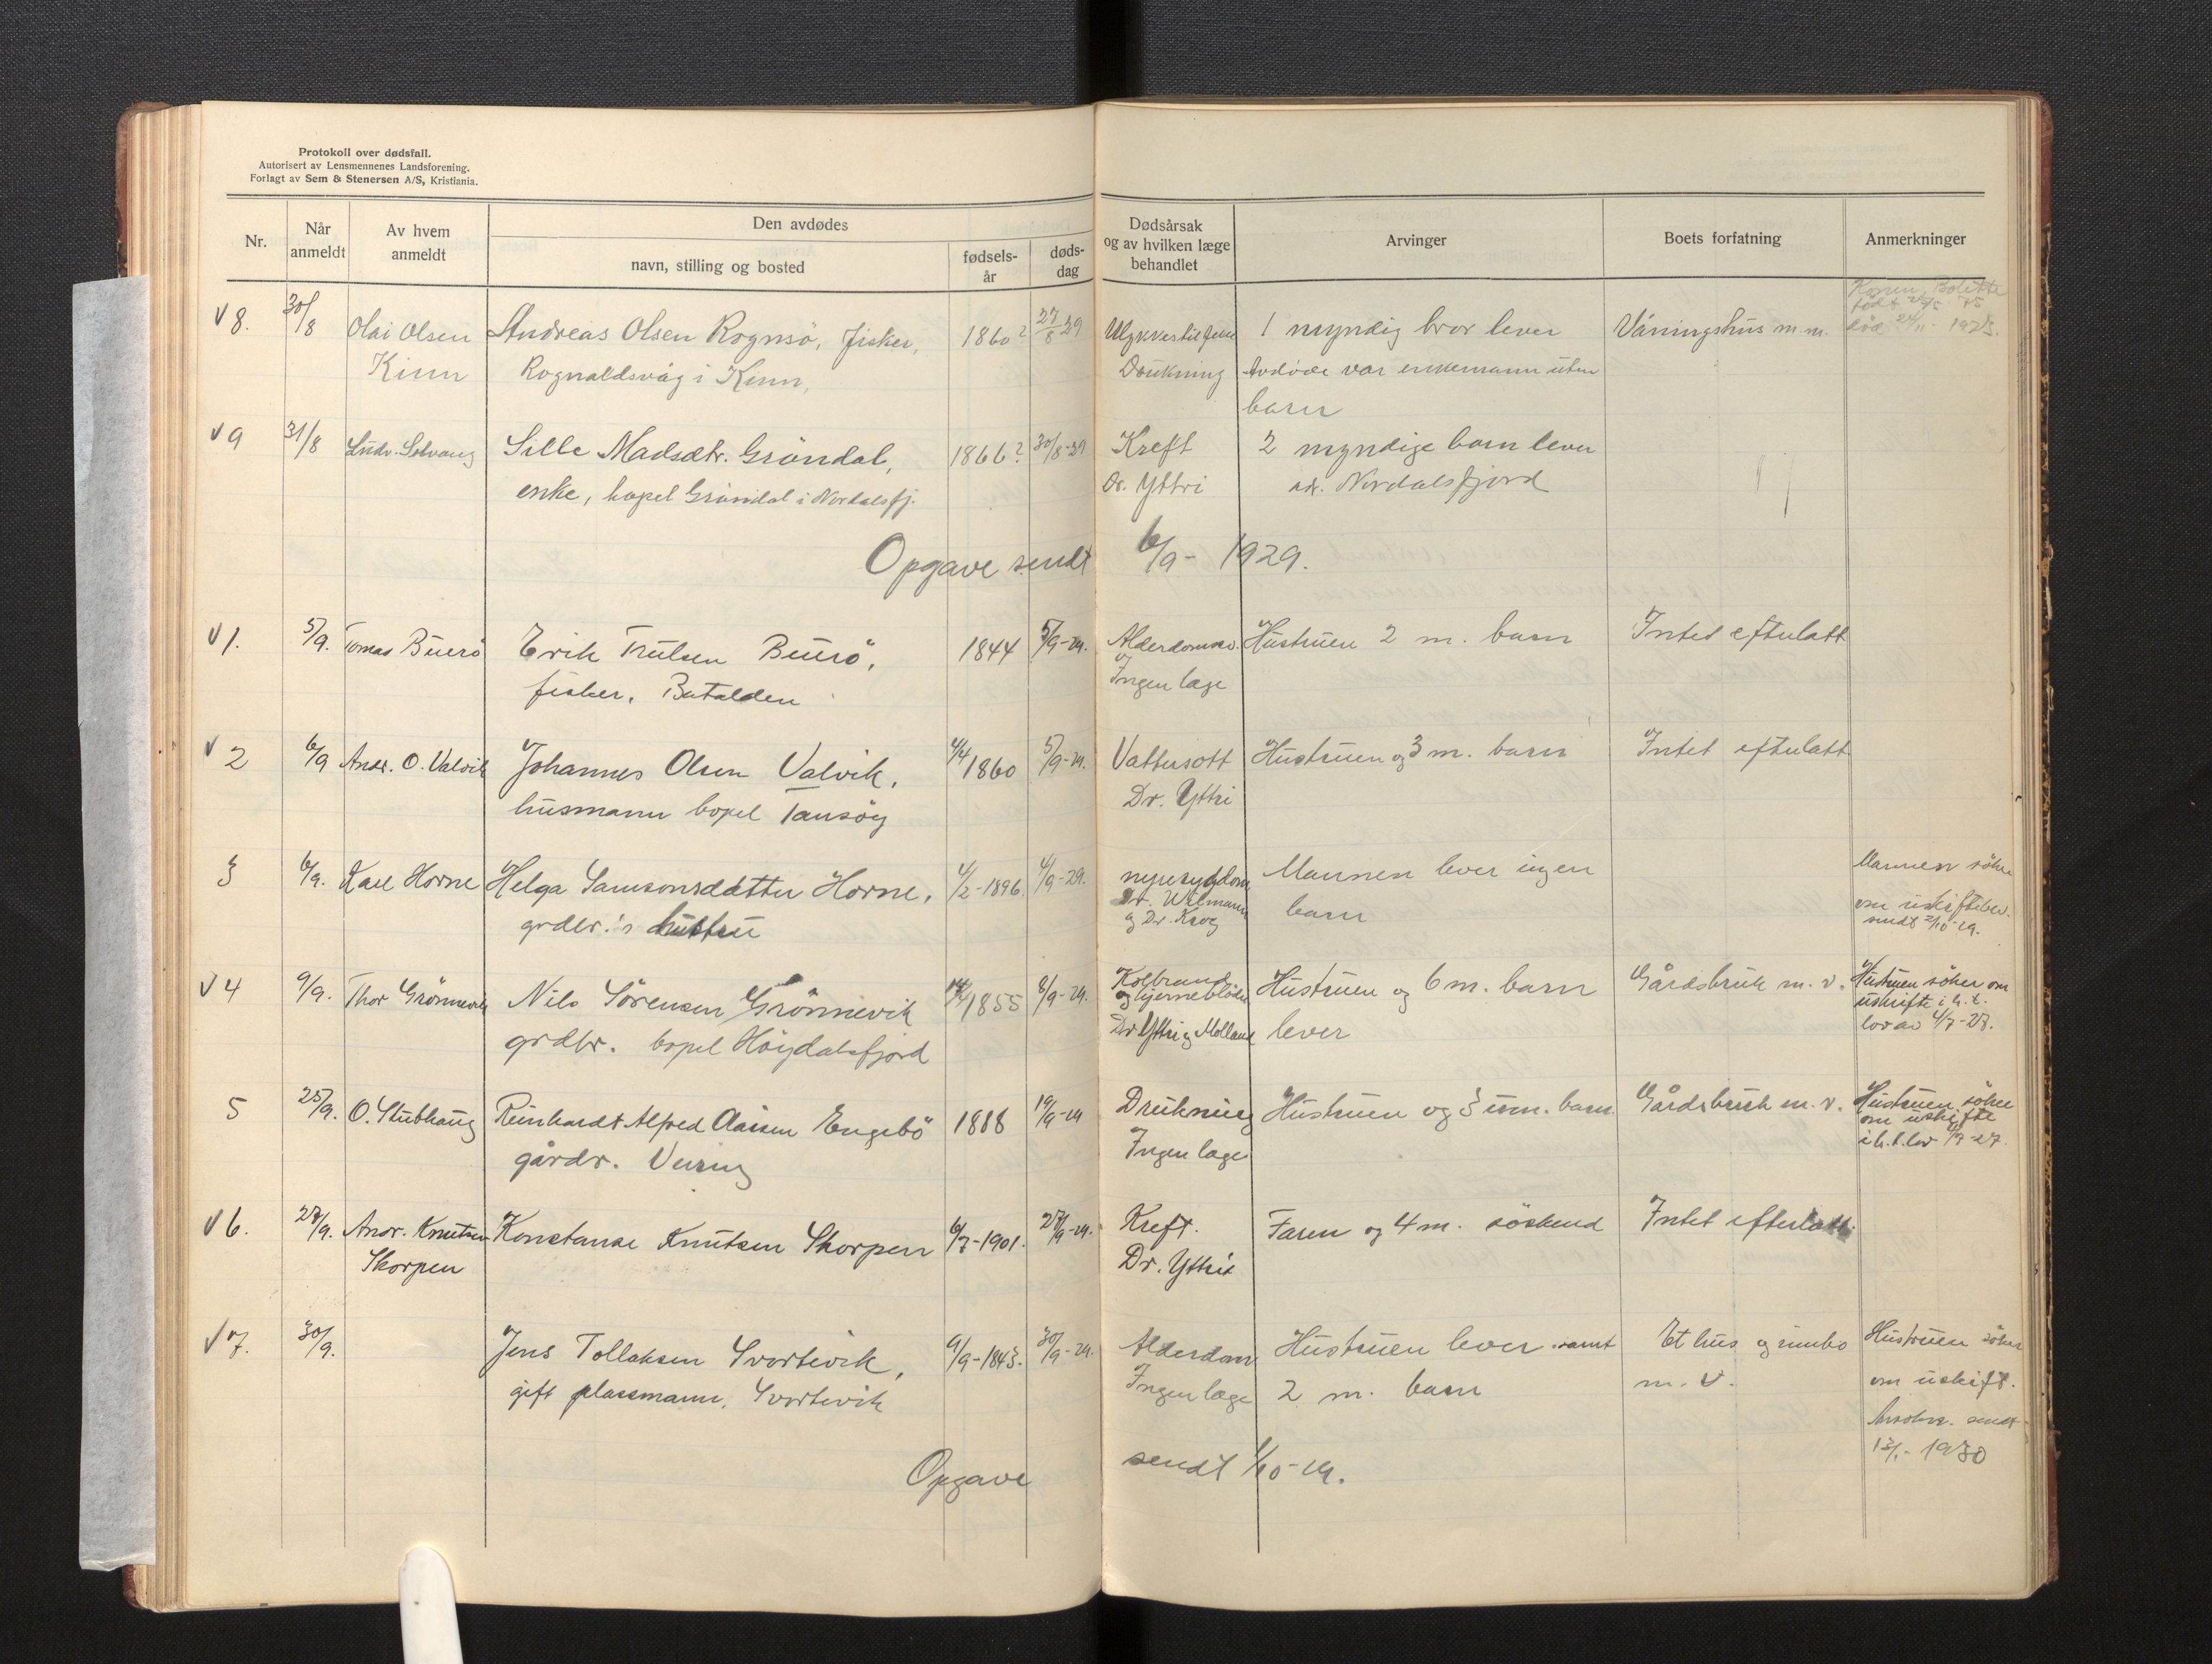 Protokoll over dødsfall.
Autorisert av Lensmennenes Landsforening.
Forlagt av Sem & Stenersen A/S, Kristiania.
Nr.
Når anmeldt
Av hvem anmeldt
Den avdødes
navn, stilling og bosted
fødselsår
dødsdag
Dødsårsak og av hvilken læge behandlet
Arvinger
Boets forfatning
Anmerkninger
V 8. 30/8 Olai Olsen Andreas Olsen Rognsö, fisker, 1860? 27/8 29 1 myndig bror lever Våningshus m.m. Konen, Bolette
født
død 24/11 - 1928.
Kinn Rognaldsvåg i Kinn, Drukning Avdöde var enkemann uten
barn
V 9 31/8 Ludv. Solvang Sille Madsdtr. Gröndal, 1866? 30/8-29 Kreft 2 myndige barn lever
enke, bopel Gröndal i Nordalsfj. Dr. Yttri adr. Nordalsfjord
Opgave sendt 6/9 - 1929.
V 1. 5/9. Tomas Buerö Erik Trulsen Buerö, 1844 5/9-29. Hustruen 2 m. barn Intet efterlatt
fisker, Batalden Ingen læge
V 2 6/9 Andr. O. Valvik Johannes Olsen Valvik, 4/4 1860 5/9-29. Vattersott Hustruen og 3 m. barn Intet efterlatt
husmann bopel Tansöy Dr. Yttri
3 6/9. Karl Horne Helga Samsonsdatter Horne, 4/2-1896. 4/9-29. nyresygdom Mannen lever ingen Mannen söker
grdbr.'s hustru Dr. Wilmann barn om uskiftebev.
og Dr. Krog sendt 2/10-29.
V 4 9/9. Thor Grönnevik Nils Sörensen Grönnevik 1855 8/9-29. Kolbrand Hustruen og 6 m. barn Gårdsbruk m.v. Hustruen söker om
og hjerneblödn. uskifte i h.t.
grdbr. bopel Höydalsfjord Dr Yttri og Molland lever lov av 4/7-27.
5 25/9. O. Stubhaug Reinhardt Alfred Aasen Engebö 1888 19/9-29 Drukning Hustruen og 3 um. barn. Gårdsbruk m.v. Hustruen söker
om uskifte
gårdr. Vevring Ingen læge i h.t. lov
V 6. 27/9. Andr. Knutsen Konstanse Knutsen Skorpen 6/7-1901. 27/9-29. Kreft. Faren og 4 m. söskend Intet efterlatt.
Skorpen Dr. Yttri
V 7. 30/9. Jens Tollaksen Svortevik, 9/9-1843. 30/9-29. Alderdom Hustruen lever samt Et hus og innbo Hustruen söker
gift plassmann, Svortevik Ingen læge 2 m. barn m.v. om uskift.
sendt
13/1- 1930
Opgave sendt 1/10-29.